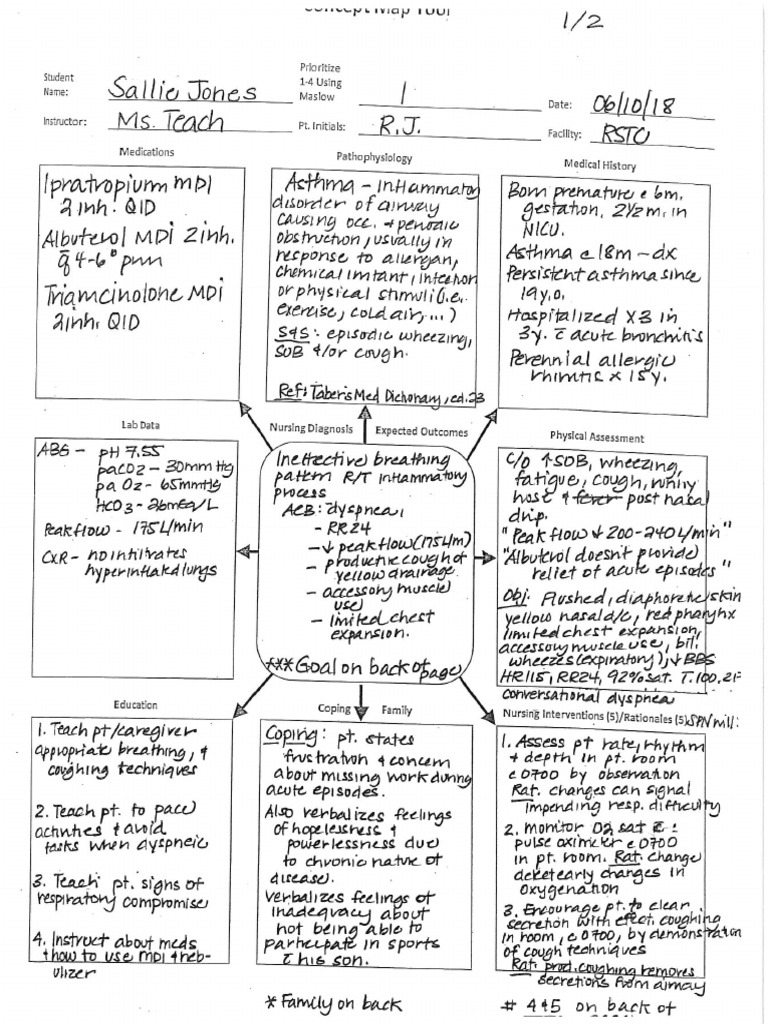 Concept Map Tool
1/2
Student Name: Sallie Jones
Prioritize 1-4 Using Maslow 1
Date: 06/10/18
Instructor: Ms. Teach
Pt. Initials: R.J.
Facility: RSTO
Medications
Ipratropium MDI
2 inh. QID
Albuterol MDI 2 inh.
q̄ 4-6° prn
Triamcinolone MDI
2 inh. QID
Pathophysiology
Asthma – Inflammatory
disorder of airway
causing occ. & periodic
obstruction, usually in
response to allergan,
chemical irritant, infection
or physical stimuli (i.e.
exercise, cold air,...)
S&S: episodic wheezing,
SOB &/or cough.
Ref: Taber's Med Dichonary, ed. 23
Medical History
Born premature @ 6m.
gestation, 2½ m. in
NICU.
Asthma @ 18m – dx
Persistent asthma since
19 y.o.
Hospitalized x3 in
3y. c̄ acute bronchitis
Perennial allergic
rhinitis x 15y.
Lab Data
ABG – pH 7.55
paCO2 – 30mmHg
paO2 – 65mmHg
HCO3 – 26mEq/L
Peakflow – 175L/min
CXR – no infiltrates
hyperinflated lungs
Nursing Diagnosis
Expected Outcomes
Ineffective breathing
pattern R/T inflammatory
process
AEB: dyspnea,
- RR24
- ↓ peakflow (175L/m)
- productive cough of
yellow drainage
- accessory muscle
use
- limited chest
expansion.
*** Goal on back of page
Physical Assessment
C/O ↑SOB, wheezing,
fatigue, cough, runny
nose & fever post nasal
drip.
"Peak flow ↓ 200-240 L/min"
"Albuterol doesn't provide
relief of acute episodes"
Obj: Flushed, diaphoretic skin
yellow nasal d/c, red pharynx
limited chest expansion,
accessory muscle use, bil.
wheezes (expiratory), ↓ BBS
HR 115, RR24, 92% sat. T. 100.2F
conversational dyspnea
Education
1. Teach pt/caregiver
appropriate breathing, &
coughing techniques
2. Teach pt. to pace
activities & avoid
tasks when dyspneic
3. Teach pt. signs of
respiratory compromise
4. Instruct about meds
& how to use MDI & neb-
ulizer
Coping
Family
Coping: pt. states
frustration & concern
about missing work during
acute episodes.
Also verbalizes feelings
of hopelessness &
powerlessness due
to chronic nature of
disease.
Verbalizes feelings of
inadequacy about
not being able to
participate in sports
c̄ his son.
* Family on back
Nursing Interventions (5)/Rationales (5) SPN will:
1. Assess pt rate, rhythm
& depth in pt. room
@ 0700 by observation
Rat. changes can signal
impending resp. difficulty
2. Monitor O2 sat c̄
pulse oximeter @ 0700
in pt. room. Rat. change
detect early changes in
oxygenation
3. Encourage pt. to clear
secretion with effect. coughing
in room, @ 0700, by demonstration
of cough techniques
Rat. prod. coughing removes
secretions from airway
# 4 & 5 on back of